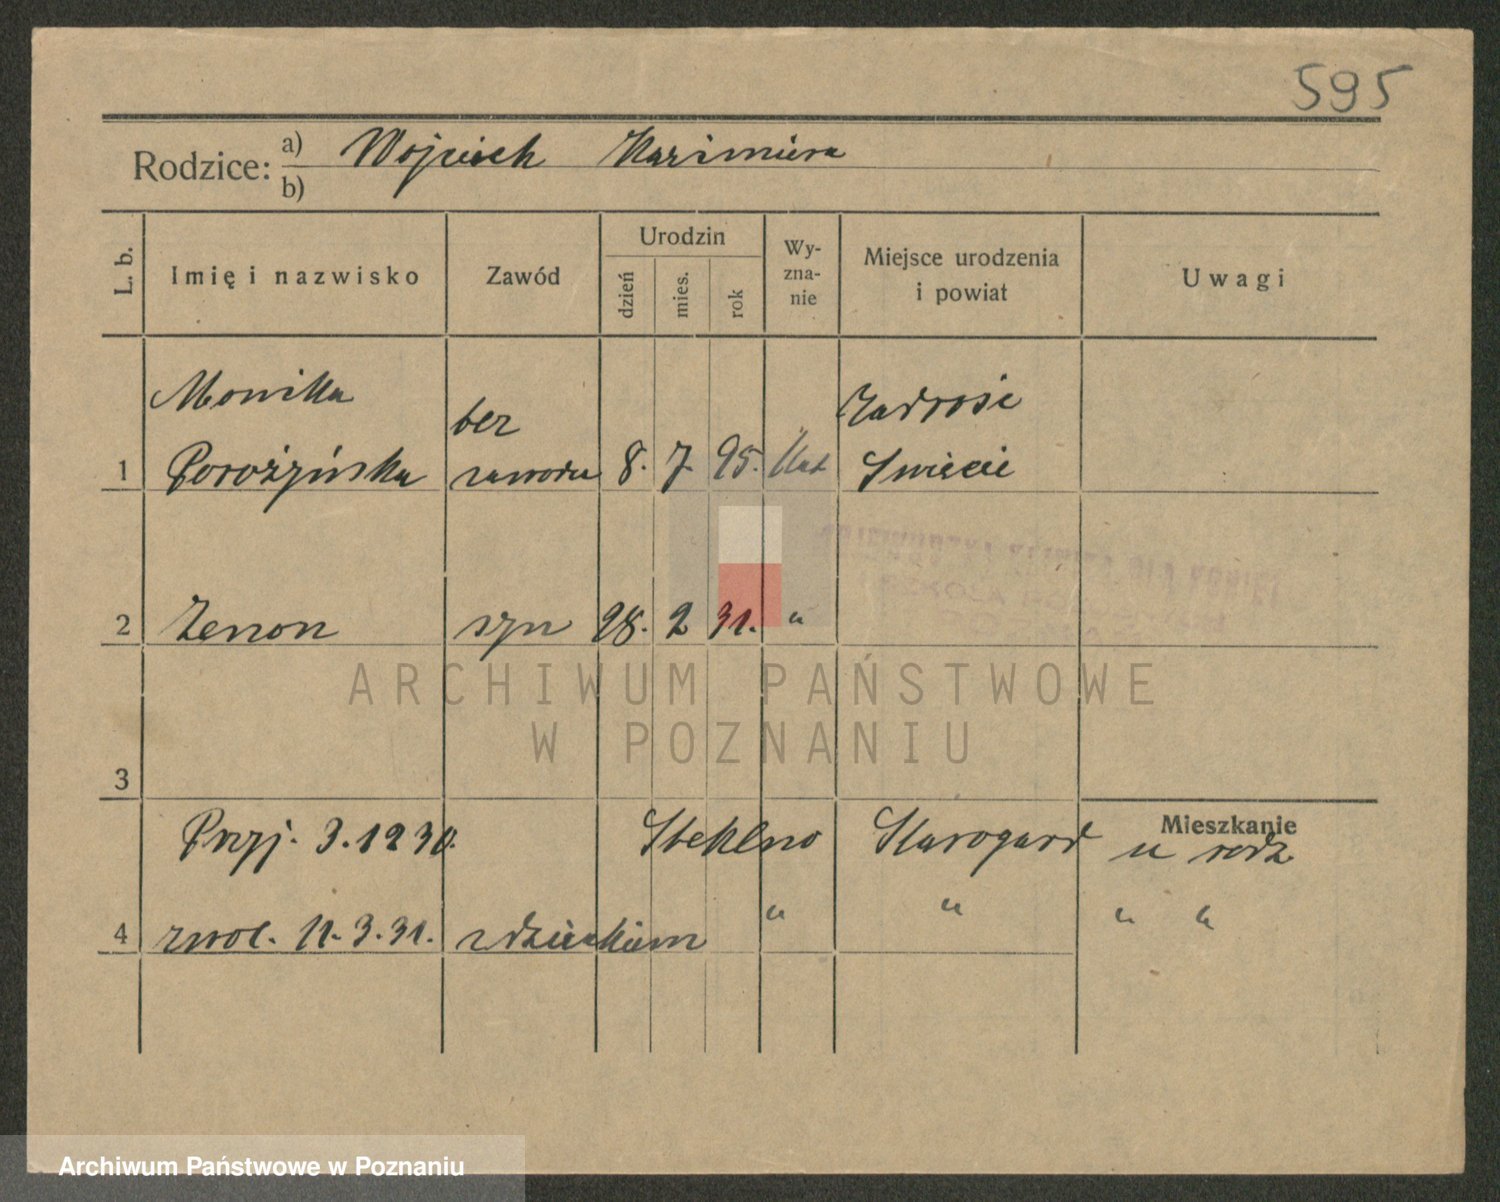 595
Rodzice: a) Wojciech Kazimiera
b)
L. b. Imię i nazwisko Zawód Urodzin dzień mies. rok Wy-zna-nie Miejsce urodzenia i powiat Uwagi
Monika bez Zazdrość
1 Porożyńska zawodu 8. 7. 95. Kat Swiecie
2 Zenon syn 28. 2 31. "
ARCHIWUM PAŃSTWOWE
W POZNANIU
3
Mieszkanie
Przyj. 3.12 30. Steklno Starogard u rodz
4 zwol. 11.3.31. z dzieckiem " " " "
Archiwum Państwowe w Poznaniu